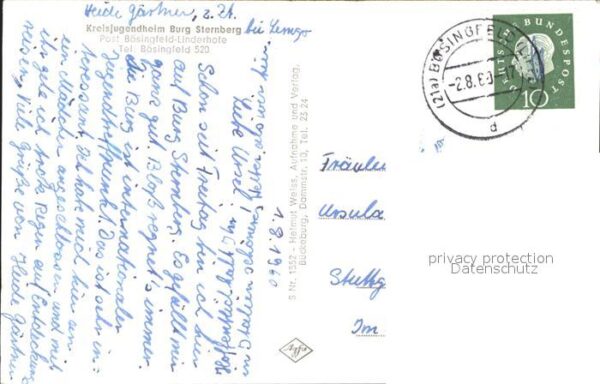 Heide Gärtner, z. Zt.
Kreisjugendheim Burg Sternberg bei Lemgo
Post Bösingfeld-Linderhofe
Tel. Bösingfeld 520
1.8.1960
Liebe Ursel!
Schon seit Freitag bin ich hier
auf Burg Sternberg. Es gefällt mir
ganz gut. Bloß regnet's immer.
Die Burg ist internationaler
Jugendtreffpunkt. Das ist sehr in-
teressant. Ich habe mich hier an
ein Mädchen angeschlossen und mit
ihr gehe ich trotz Regen auf Entdeckungs-
reisen. Viele Grüße von Heide Gärtner
S Nr. 1552 - Helmut Weiss, Aufnahme und Verlag,
Bückeburg, Dammstr. 10, Tel. 23 24
Agfa
(21a) BÖSINGFELD
-2.8.60
d
DEUTSCHE BUNDESPOST
10
Fräulein
Ursula
Stuttg
Im
privacy protection
Datenschutz